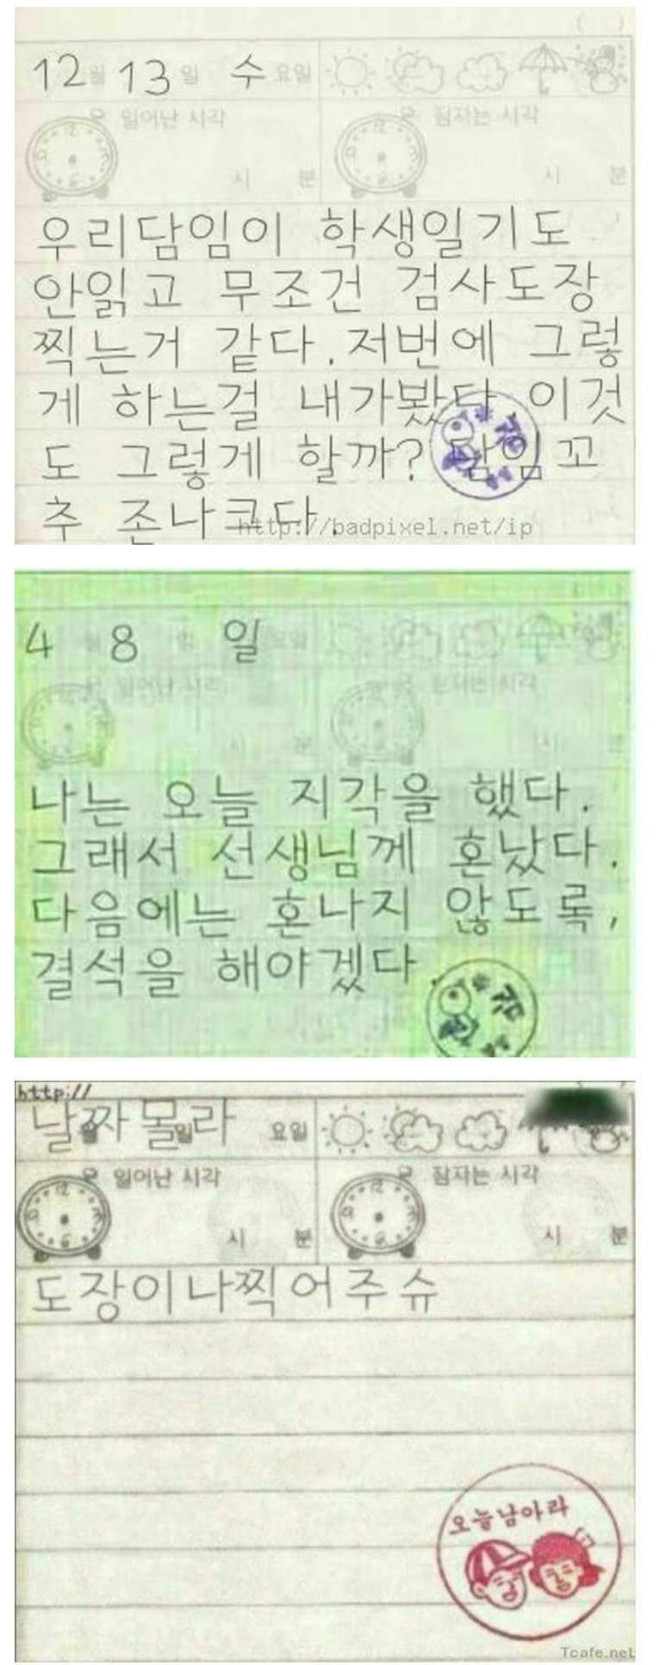 12월 13일 수 요일
일어난 시각 잠자는 시각
시 분 시 분
우리담임이 학생일기도
안읽고 무조건 검사도장
찍는거 같다. 저번에 그렇
게 하는걸 내가봤다. 이것
도 그렇게 할까? 담임꼬
추 존나크다.
http://badpixel.net/ip
4월 8일 일 요일
일어난 시각 잠자는 시각
시 분 시 분
나는 오늘 지각을 했다.
그래서 선생님께 혼났다.
다음에는 혼나지 않도록,
결석을 해야겠다.
http://
날짜몰라 요일
일어난 시각 잠자는 시각
시 분 시 분
도장이나찍어주슈
오늘남아라
Tcafe.net